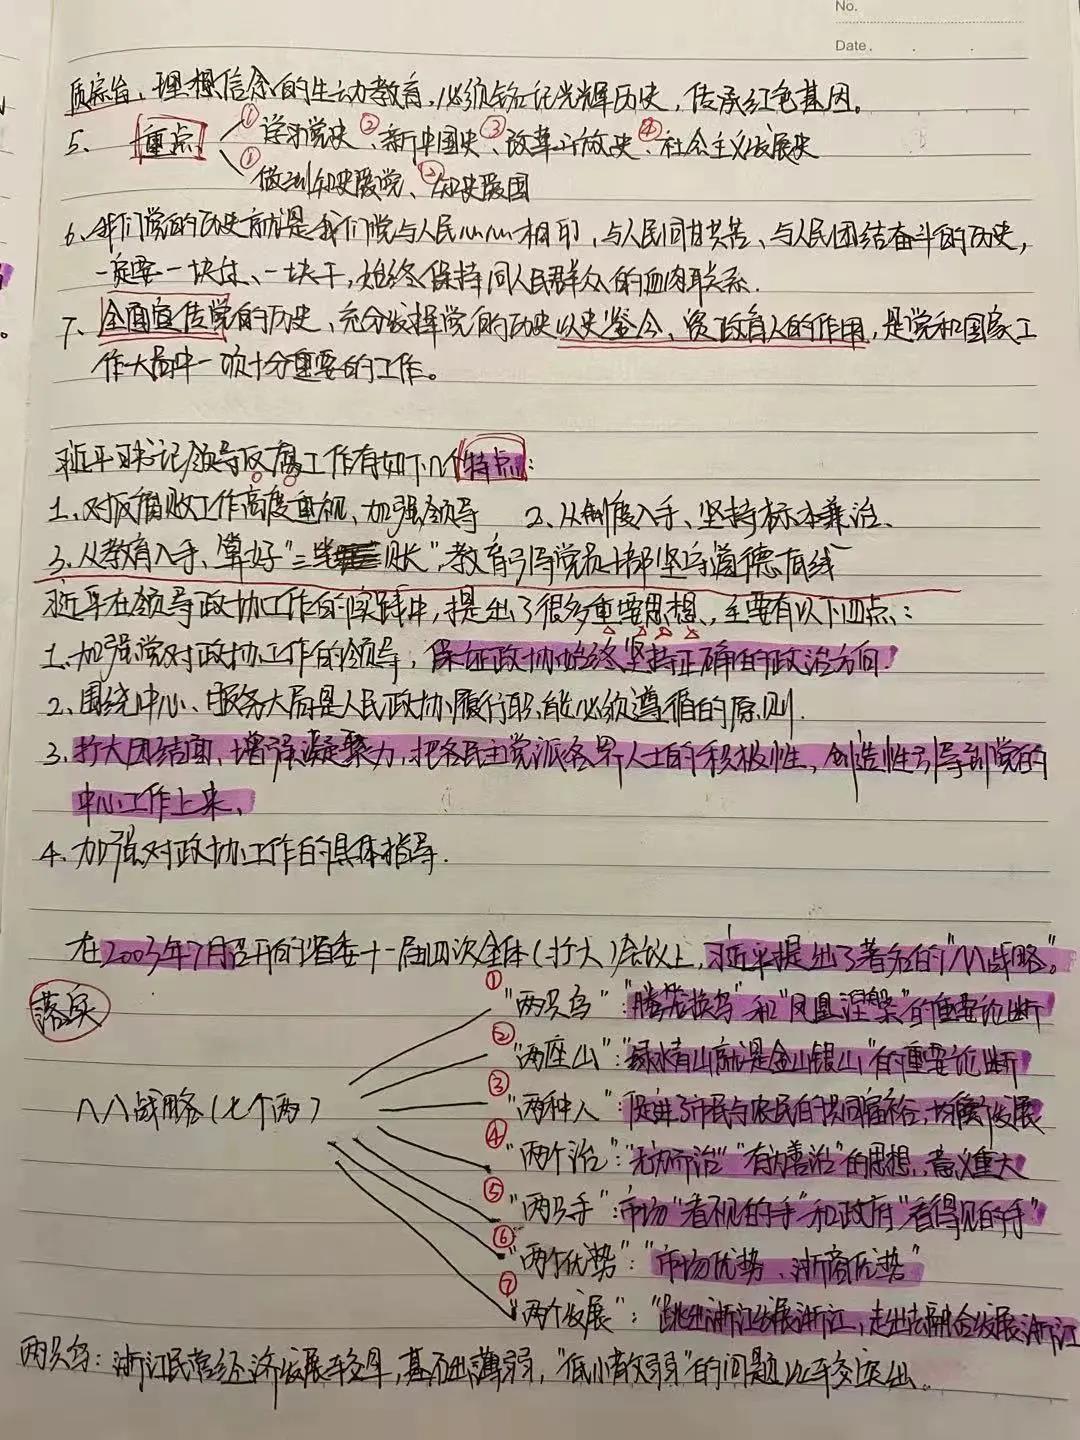 No.
Date.
质宗旨、理想信念的生动教育，必须铭记光辉历史，传承红色基因。
5、重点 ①学习党史、②新中国史、③改革开放史、④社会主义发展史
①做到知史爱党、②知史爱国
6、我们党的历史就是我们党与人民心心相印、与人民同甘共苦、与人民团结奋斗的历史，
一定要一块过、一块干，始终保持同人民群众的血肉联系.
7、全面宣传党的历史、充分发挥党的历史以史鉴今、资政育人的作用，是党和国家工
作大局中一项十分重要的工作。
习近平书记领导反腐工作有如下几个特点：
1、对反腐败工作高度重视、加强领导 2、从制度入手、坚持标本兼治、
3、从教育入手、算好"三笔账"，教育引导党员干部坚守道德底线
习近平在领导政协工作的实践中，提出了很多重要思想，主要有以下四点：
1、加强党对政协工作的领导，保证政协始终坚持正确的政治方向.
2、围绕中心、服务大局是人民政协履行职能必须遵循的原则.
3、扩大团结面，增强凝聚力，把各民主党派各界人士的积极性，创造性引导到党的
中心工作上来、
4、加强对政协工作的具体指导.
在2003年7月召开的省委十一届四次全体（扩大）会议上，习近平提出了著名的"八八战略"。
落实
①"两只鸟"："腾笼换鸟"和"凤凰涅槃"的重要论断
②"两座山"："绿水青山就是金山银山"的重要论断
八八战略（七个两）
③"两种人"：促进了市民与农民的共同富裕，均衡发展
④"两个治"："无为而治""有为善治"的思想，意义重大
⑤"两只手"：市场"看不见的手"和政府"看得见的手"
⑥"两个优势"："市场优势、浙商优势"
⑦"两个发展"："跳出浙江发展浙江，走出去融合发展浙江
两只鸟：浙江民营经济发展较早，基础薄弱，"低小散弱"的问题比较突出.